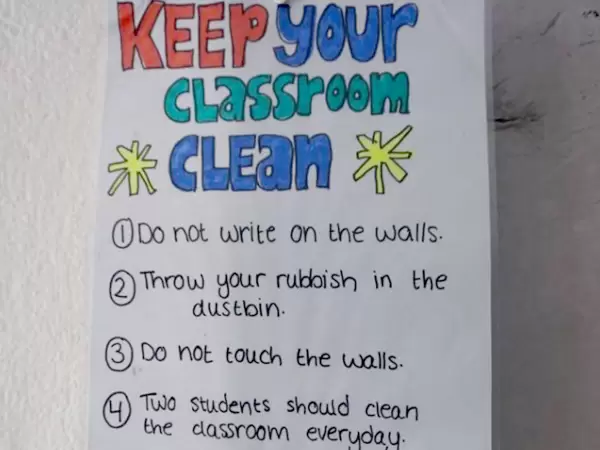 KEEP your
classroom
CLEan
① Do not write on the walls.
② Throw your rubbish in the
dustbin.
③ Do not touch the walls.
④ Two students should clean
the classroom everyday.